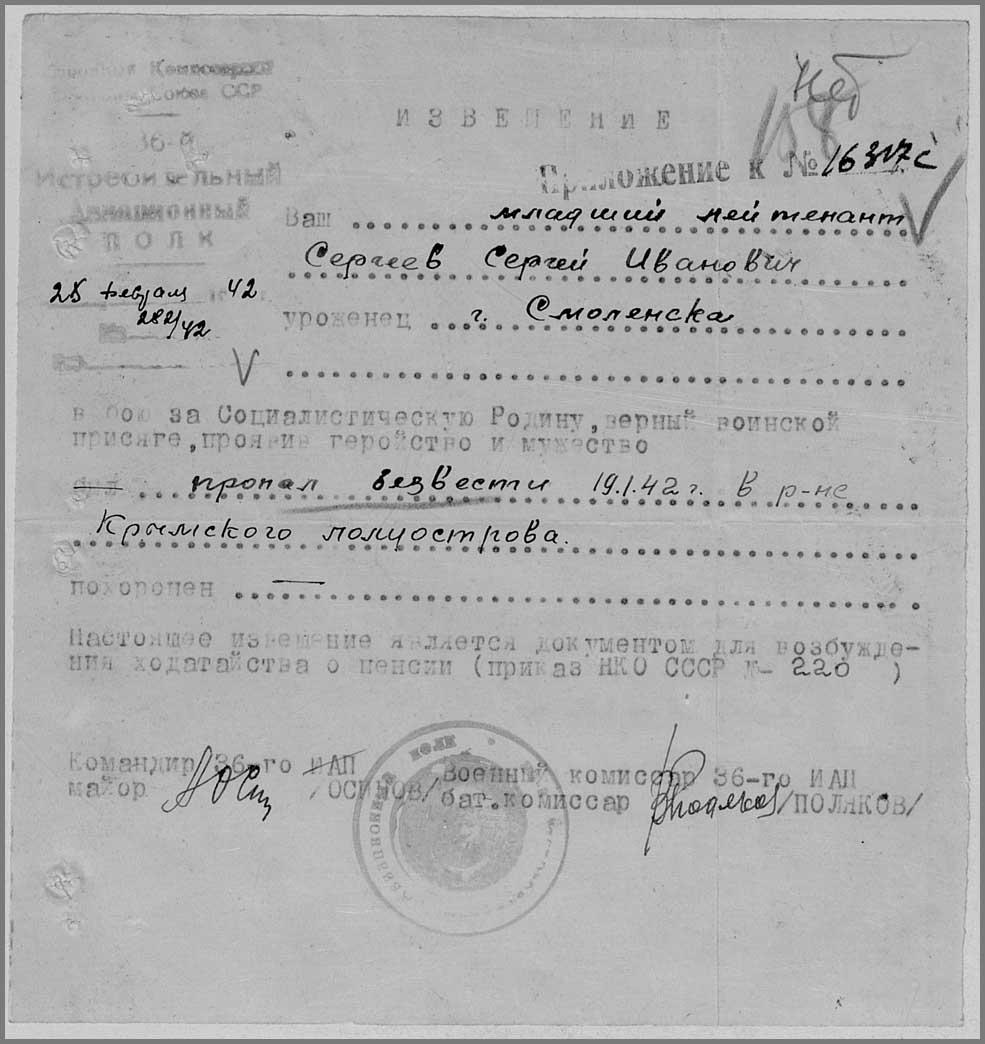 Народный Комиссариат
Союза ССР
36-й
Истребительный
Авиационный
ПОЛК
25 февраля 42
282/42
Неб
188
ИЗВЕЩЕНИЕ
Приложение к № 16317с
Ваш младший лейтенант
Сергеев Сергей Иванович
уроженец г. Смоленска
в бою за Социалистическую Родину,верный воинской
присяге,проявив геройство и мужество
пропал безвести 19.1.42 г. в р-не
Крымского полуострова.
похоронен —
Настоящее извещение является документом для возбужде-
ния ходатайства о пенсии (приказ НКО СССР № 220 )
Командир 36-го ИАП
майор /ОСИПОВ/
Военный комиссар 36-го ИАП
бат.комиссар /ПОЛЯКОВ/